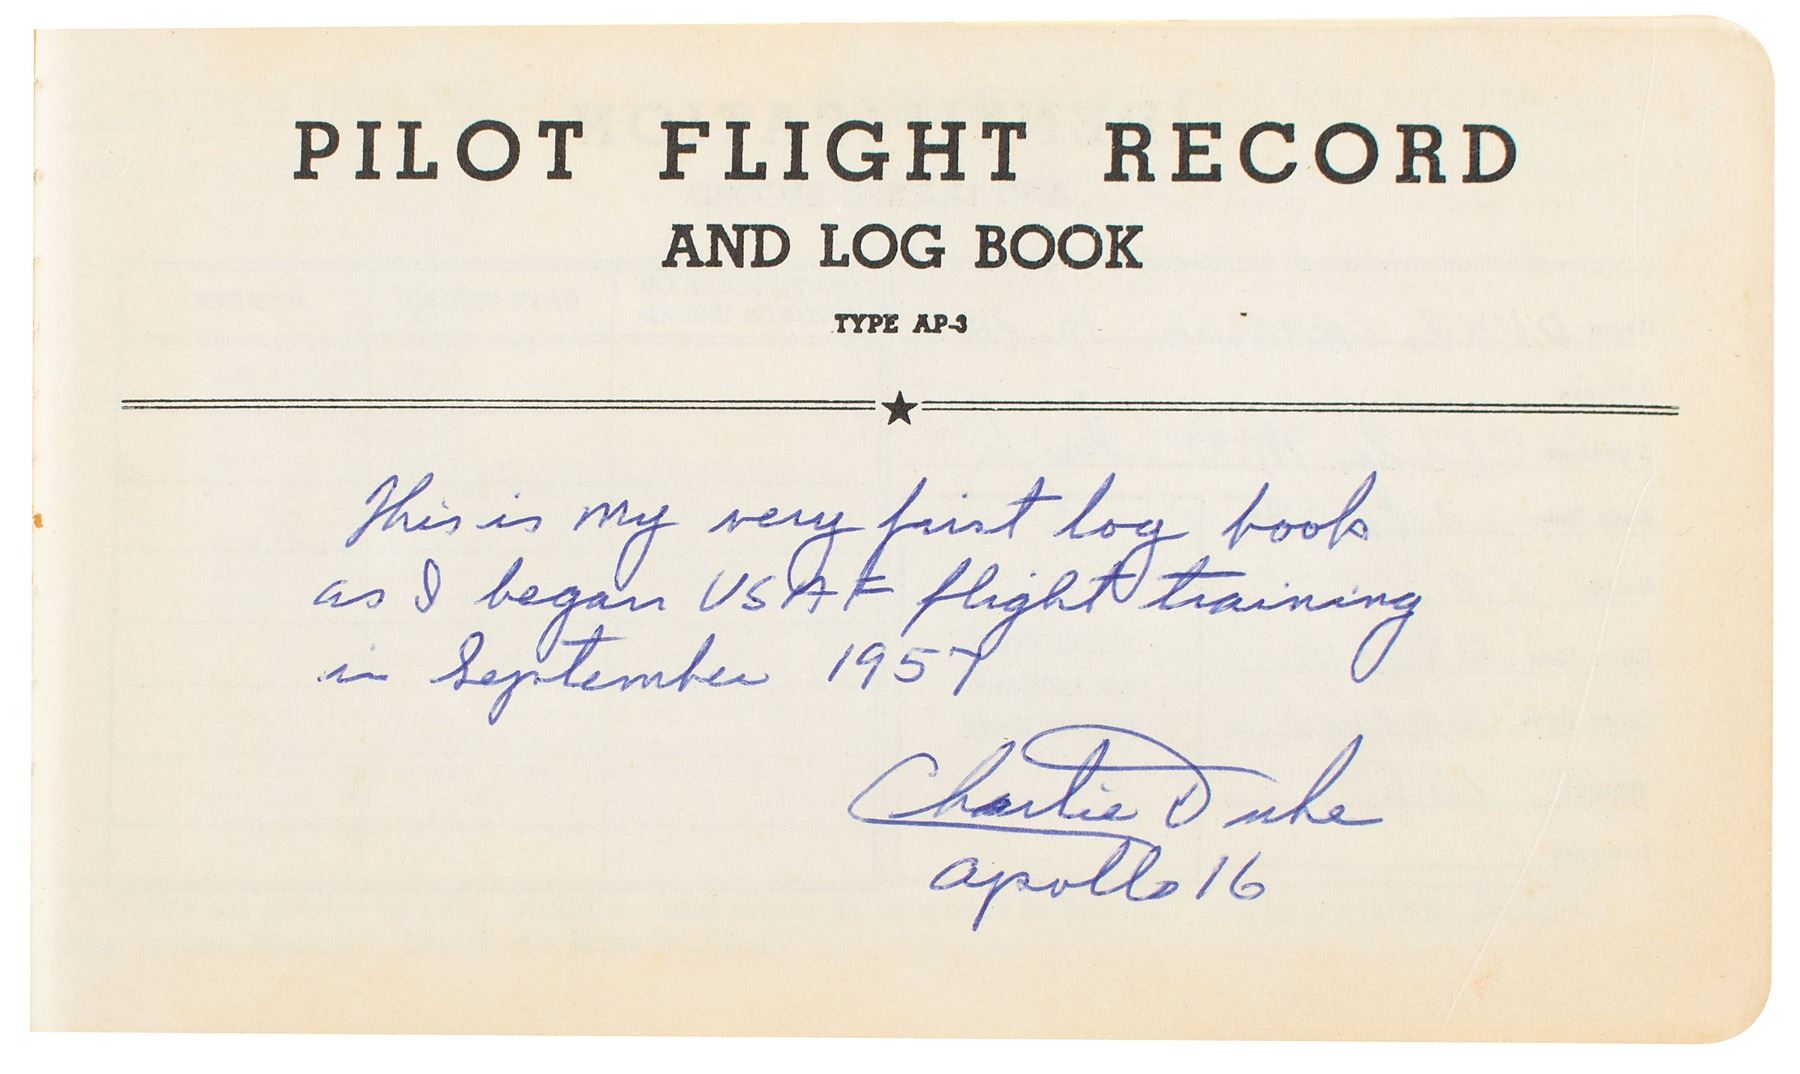 PILOT FLIGHT RECORD
AND LOG BOOK
TYPE AP-3
This is my very first log book
as I began USAF flight training
in September 1957
Charlie Duke
Apollo 16